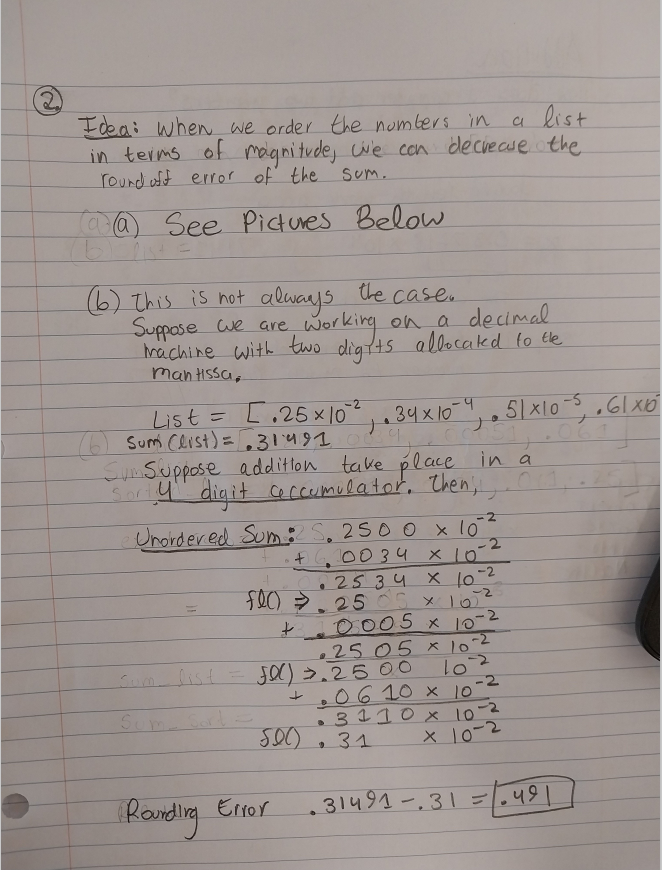 2
Idea: When we order the numbers in a list
in terms of magnitude, we can decrease the
roundoff error of the sum.
(a) See Pictures Below
(b) This is not always the case.
Suppose we are working on a decimal
machine with two digits allocated to the
mantissa.
List = [.25×10⁻², .34×10⁻⁴, .51×10⁻⁵, .61×10
sum(list) = .31491
Suppose addition take place in a
4 digit accumulator. Then,
Unordered Sum: .2500 × 10⁻²
+ .0034 × 10⁻²
.2534 × 10⁻²
= fl() ⇒ .25 × 10⁻²
+ .0005 × 10⁻²
.2505 × 10⁻²
fl() ⇒ .2500 10⁻²
+ .0610 × 10⁻²
.3110 × 10⁻²
fl() .31 × 10⁻²
Rounding Error .31491 - .31 = .491